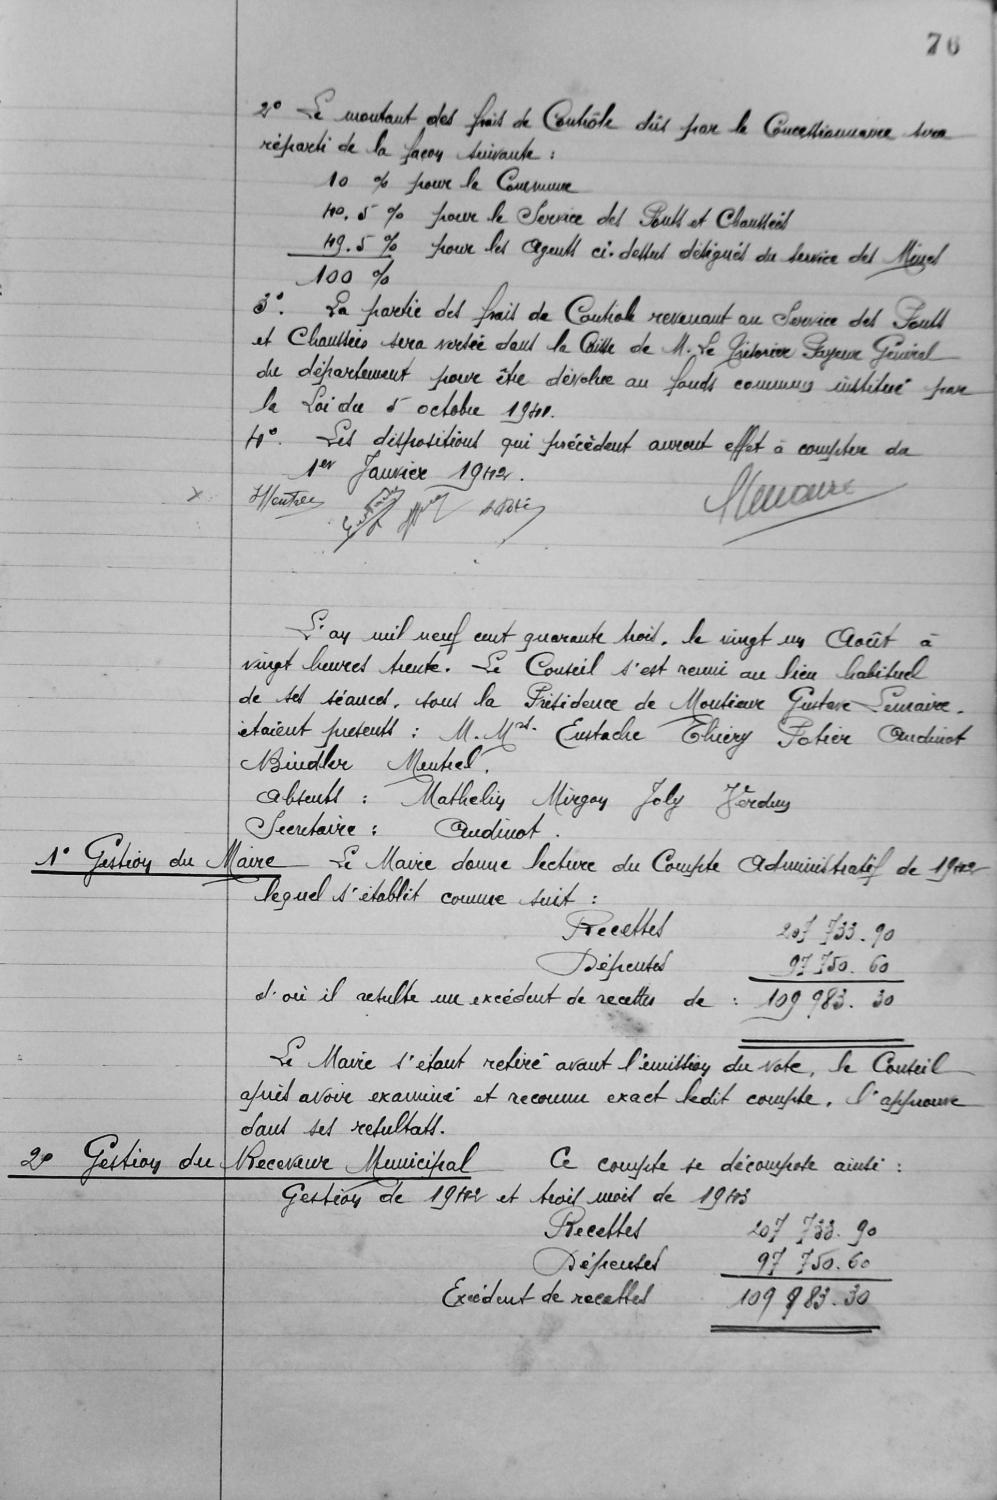 76
2° Le montant des frais de Contrôle dûs par le Concessionnaire sera
réparti de la façon suivante :
10 % pour la Commune
40.5 % pour le Service des Ponts et Chaussées
49.5 % pour les Agents ci-dessus désignés du service des Mines
100 %
3°. La partie des frais de Controle revenant au Service des Ponts
et Chaussées sera versée dans la Caisse de M. Le Trésorier Payeur Général
du département pour être dévolue au fonds commun institué par
la Loi du 5 octobre 1940.
4°. Les dispositions qui précèdent auront effet à compter du
1er Janvier 1942.
L'an mil neuf cent quarante trois, le vingt un Août à
vingt heures trente. Le Conseil s'est reuni au lieu habituel
de ses séances, sous la Présidence de Monsieur Gustave Lemaire.
étaient presents : M.Mrs. Eustache Thiery Potier Audinot
Bindler Mentrel.
Absents : Mathelin Mirgon Joly Verdun
Secretaire : Audinot.
1° Gestion du Maire Le Maire donne lecture du Compte Administratif de 1942
lequel s'établit comme suit :
Recettes 207 733.90
Dépenses 97 750.60
d'où il resulte un excédent de recettes de : 109 983.30
Le Maire s'étant retiré avant l'émission du vote, le Conseil
après avoir examiné et reconnu exact ledit compte, l'approuve
dans ses resultats.
2° Gestion du Receveur Municipal Ce compte se décompose ainsi :
Gestion de 1942 et trois mois de 1943
Recettes 207 733.90
Dépenses 97 750.60
Excédent de recettes 109 983.30